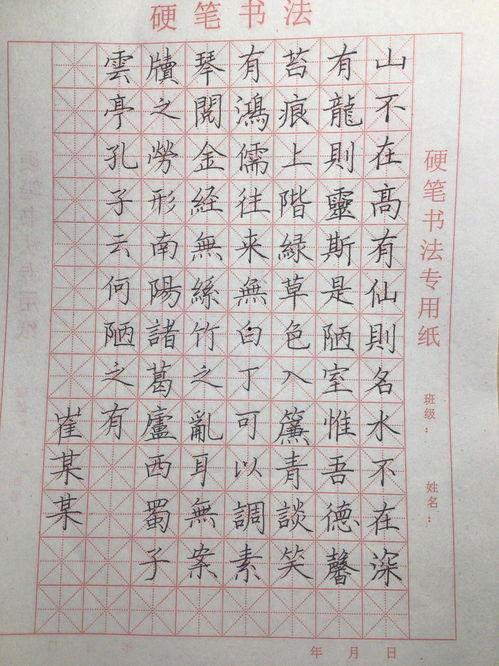 硬笔书法
硬笔书法专用纸
班级：
姓名：
山不在髙有仙則名水不在深
有龍則靈斯是陋室惟吾德馨
苔痕上階綠草色入簾青談笑
有鴻儒往来無白丁可以調素
琴閱金経無絲竹之亂耳無案
牘之勞形南陽諸葛廬西蜀子
雲亭孔子云何陋之有
崔某某
年 月 日